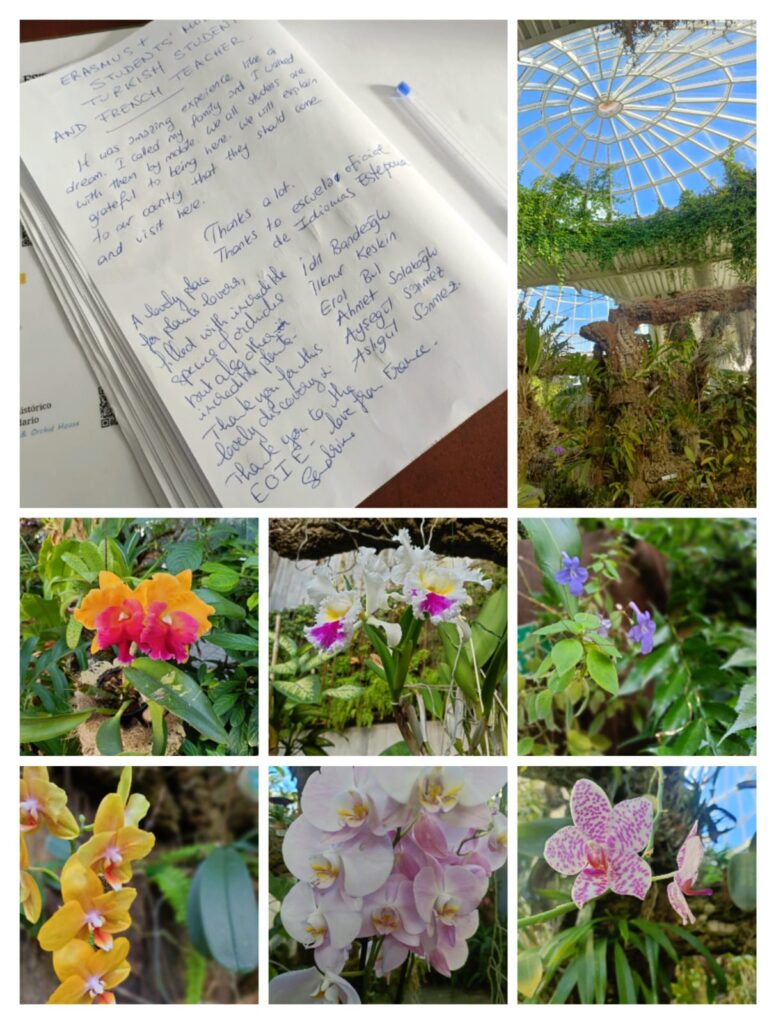 ERASMUS +
STUDENTS' MO
TURKISH STUDENT
AND FRENCH TEACHER.
It was amazing experience like a
dream. I called my family and I walked
with them by mobile. We all studies are
grateful to being here. We will explain
to our country that they should come
and visit here.
Thanks a lot.
Thanks to escuela oficial
de Idiomas Estepona
İdil Bandeoğlu
İlknur Keskin
Erol Bul
Ahmet Salakoğlu
Ayşegül Sönmez
Aslıgül Sönmez.
A lovely place
for plants lovers,
filled with incredible
species of orchids
but also other
incredible plants.
Thank you for this
lovely discovery!
Thank you to the
EOIE - love from France.
Sandrine
istórico
ario
& Orchid House